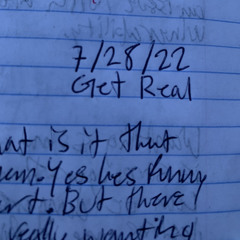 7/28/22
Get Real
at is it that
an. Yes hes funny
rt. But there
really wanting